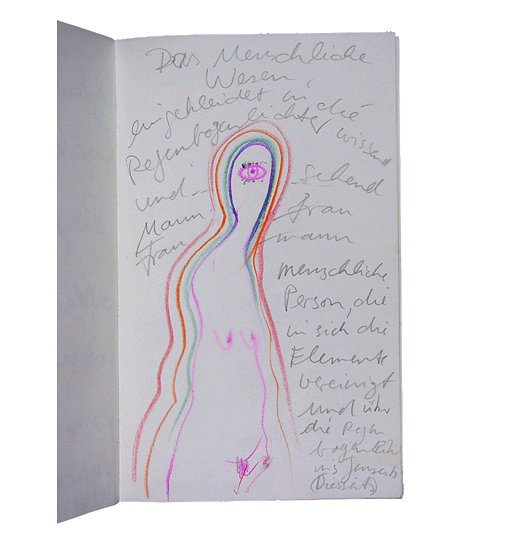 Das Menschliche
Wesen,
eingekleidet in die
Regenbogenlichter wissend
und -- sehend
Mann Frau
Frau mann
menschliche
Person, die
in sich die
Elemente
vereinigt
und über
die Regen
bogenlich
ins Jenseits
(Diesseits)